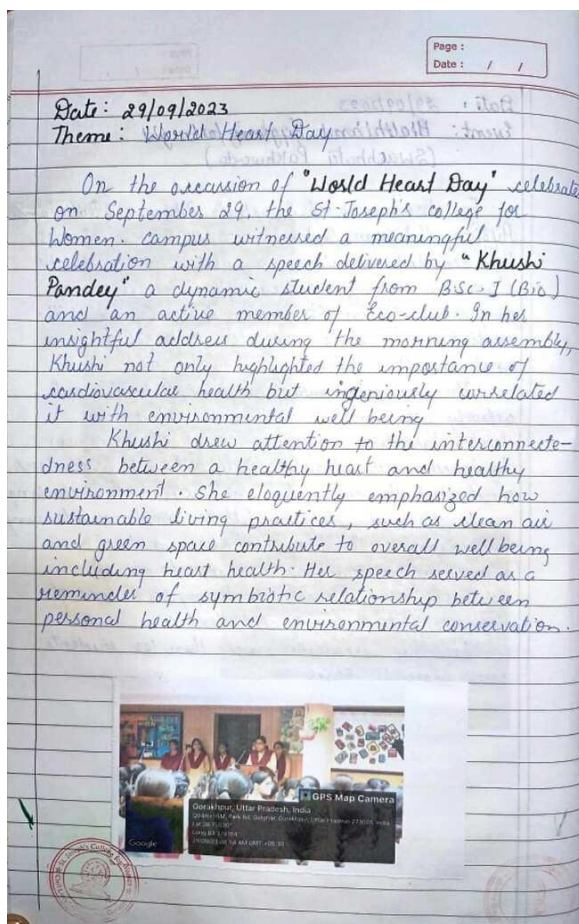 Page :
Date : / /
Date : 29/09/2023
Theme : World Heart Day
On the occassion of "World Heart Day" celebrate
on September 29, the St. Joseph's college for
Women. campus witnessed a meaningful
celebration with a speech delivered by "Khushi
Pandey" a dynamic student from B.Sc-I (Bio)
and an active member of Eco-club. In her
insightful address during the morning assembly,
Khushi not only highlighted the importance of
cardiovascular health but ingeniously correlated
it with environmental well being
Khushi drew attention to the interconnecte-
dness between a healthy heart and healthy
environment. She eloquently emphasized how
sustainable living practices, such as clean air
and green space contribute to overall well being
including heart health. Her speech served as a
reminder of symbiotic relationship between
personal health and environmental conservation.
GPS Map Camera
Gorakhpur, Uttar Pradesh, India
Google